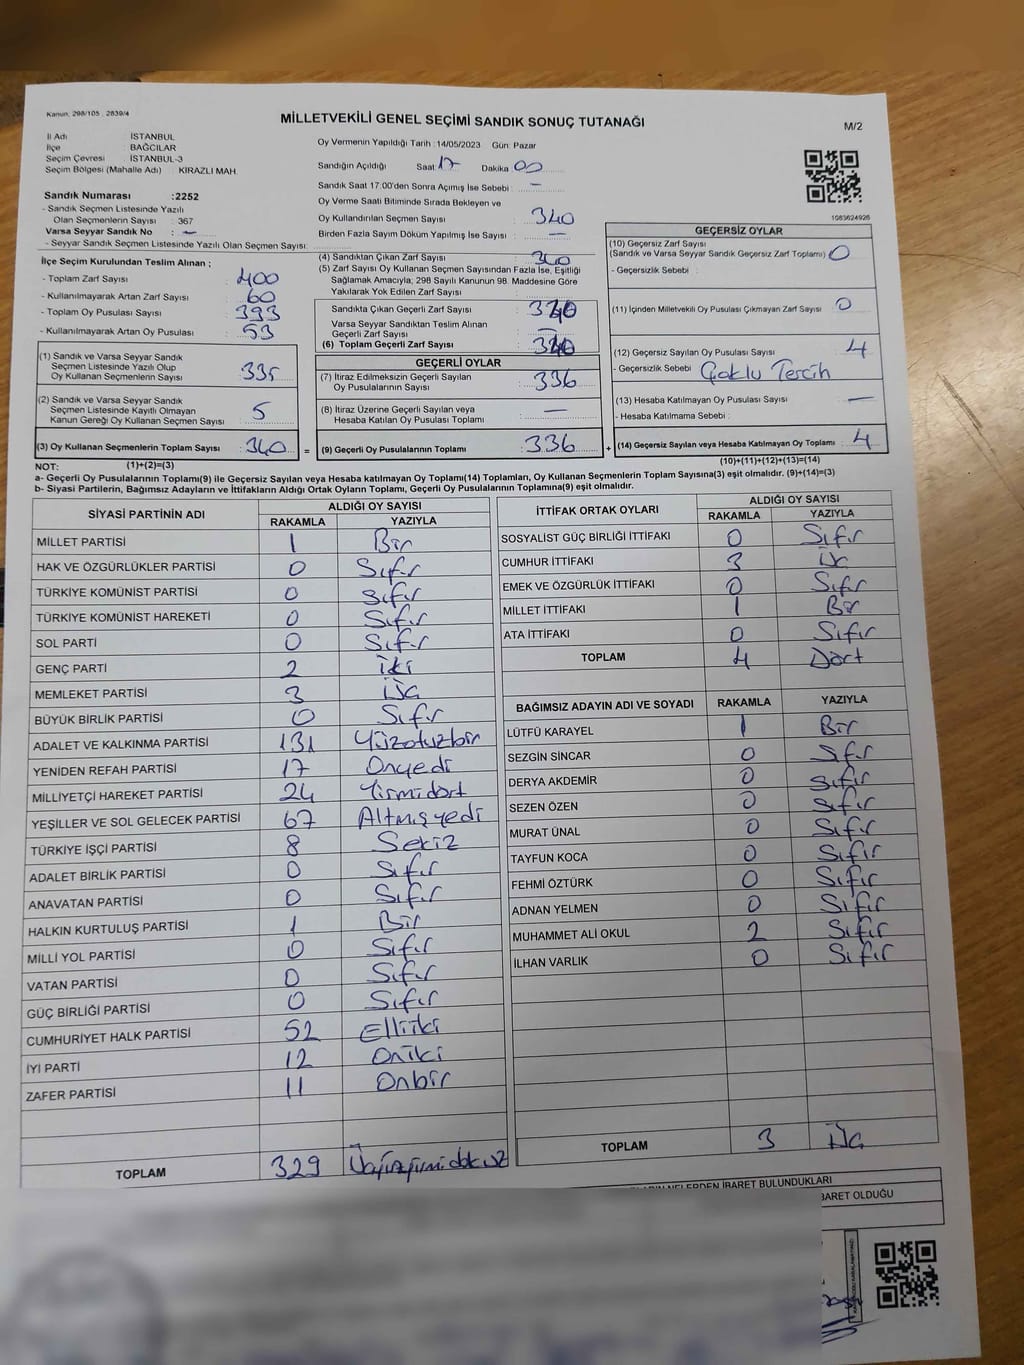 Kanun, 298/105 , 2839/4
MİLLETVEKİLİ GENEL SEÇİMİ SANDIK SONUÇ TUTANAĞI
M/2
İl Adı İSTANBUL
İlçe BAĞCILAR
Seçim Çevresi İSTANBUL-3
Seçim Bölgesi (Mahalle Adı) : KİRAZLI MAH.
Sandık Numarası :2252
- Sandık Seçmen Listesinde Yazılı
Olan Seçmenlerin Sayısı : 367
Varsa Seyyar Sandık No : —
- Seyyar Sandık Seçmen Listesinde Yazılı Olan Seçmen Sayısı:
Oy Vermenin Yapıldığı Tarih : 14/05/2023 Gün: Pazar
Sandığın Açıldığı Saat: 17 Dakika: 00
Sandık Saat 17:00'den Sonra Açımış İse Sebebi : —
Oy Verme Saati Bitiminde Sırada Bekleyen ve
Oy Kullandırılan Seçmen Sayısı : 340
Birden Fazla Sayım Döküm Yapılmış İse Sayısı : —
1083624926
İlçe Seçim Kurulundan Teslim Alınan ;
- Toplam Zarf Sayısı : 400
- Kullanılmayarak Artan Zarf Sayısı : 60
- Toplam Oy Pusulası Sayısı : 393
- Kullanılmayarak Artan Oy Pusulası : 53
(1) Sandık ve Varsa Seyyar Sandık
Seçmen Listesinde Yazılı Olup
Oy Kullanan Seçmenlerin Sayısı : 335
(2) Sandık ve Varsa Seyyar Sandık
Seçmen Listesinde Kayıtlı Olmayan
Kanun Gereği Oy Kullanan Seçmen Sayısı : 5
(3) Oy Kullanan Seçmenlerin Toplam Sayısı : 340
(4) Sandıktan Çıkan Zarf Sayısı : 340
(5) Zarf Sayısı Oy Kullanan Seçmen Sayısından Fazla İse, Eşitliği
Sağlamak Amacıyla; 298 Sayılı Kanunun 98. Maddesine Göre
Yakılarak Yok Edilen Zarf Sayısı :
Sandıkta Çıkan Geçerli Zarf Sayısı : 340
Varsa Seyyar Sandıktan Teslim Alınan
Geçerli Zarf Sayısı : —
(6) Toplam Geçerli Zarf Sayısı : 340
GEÇERLİ OYLAR
(7) İtiraz Edilmeksizin Geçerli Sayılan
Oy Pusulalarının Sayısı : 336
(8) İtiraz Üzerine Geçerli Sayılan veya
Hesaba Katılan Oy Pusulası Toplamı : —
= (9) Geçerli Oy Pusulalarının Toplamı : 336
GEÇERSİZ OYLAR
(10) Geçersiz Zarf Sayısı
(Sandık ve Varsa Seyyar Sandık Geçersiz Zarf Toplamı) : 0
- Geçersizlik Sebebi :
(11) İçinden Milletvekili Oy Pusulası Çıkmayan Zarf Sayısı : 0
(12) Geçersiz Sayılan Oy Pusulası Sayısı : 4
- Geçersizlik Sebebi : Çoklu Tercih
(13) Hesaba Katılmayan Oy Pusulası Sayısı : —
- Hesaba Katılmama Sebebi :
+ (14) Geçersiz Sayılan veya Hesaba Katılmayan Oy Toplamı : 4
NOT: (1)+(2)=(3)
(10)+(11)+(12)+(13)=(14)
a- Geçerli Oy Pusulalarının Toplamı(9) ile Geçersiz Sayılan veya Hesaba Katılmayan Oy Toplamı(14) Toplamları, Oy Kullanan Seçmenlerin Toplam Sayısına(3) eşit olmalıdır. (9)+(14)=(3)
b- Siyasi Partilerin, Bağımsız Adayların ve İttifakların Aldığı Ortak Oyların Toplamı, Geçerli Oy Pusulalarının Toplamına(9) eşit olmalıdır.
SİYASİ PARTİNİN ADI ALDIĞI OY SAYISI
RAKAMLA YAZIYLA
MİLLET PARTİSİ 1 Bir
HAK VE ÖZGÜRLÜKLER PARTİSİ 0 Sıfır
TÜRKİYE KOMÜNİST PARTİSİ 0 Sıfır
TÜRKİYE KOMÜNİST HAREKETİ 0 Sıfır
SOL PARTİ 0 Sıfır
GENÇ PARTİ 2 İki
MEMLEKET PARTİSİ 3 Üç
BÜYÜK BİRLİK PARTİSİ 0 Sıfır
ADALET VE KALKINMA PARTİSİ 131 Yüzotuzbir
YENİDEN REFAH PARTİSİ 17 Onyedi
MİLLİYETÇİ HAREKET PARTİSİ 24 Yirmidört
YEŞİLLER VE SOL GELECEK PARTİSİ 67 Altmışyedi
TÜRKİYE İŞÇİ PARTİSİ 8 Sekiz
ADALET BİRLİK PARTİSİ 0 Sıfır
ANAVATAN PARTİSİ 0 Sıfır
HALKIN KURTULUŞ PARTİSİ 1 Bir
MİLLİ YOL PARTİSİ 0 Sıfır
VATAN PARTİSİ 0 Sıfır
GÜÇ BİRLİĞİ PARTİSİ 0 Sıfır
CUMHURİYET HALK PARTİSİ 52 Elliiki
İYİ PARTİ 12 Oniki
ZAFER PARTİSİ 11 Onbir
TOPLAM 329 Üçyüzyirmidokuz
İTTİFAK ORTAK OYLARI ALDIĞI OY SAYISI
RAKAMLA YAZIYLA
SOSYALİST GÜÇ BİRLİĞİ İTTİFAKI 0 Sıfır
CUMHUR İTTİFAKI 3 Üç
EMEK VE ÖZGÜRLÜK İTTİFAKI 0 Sıfır
MİLLET İTTİFAKI 1 Bir
ATA İTTİFAKI 0 Sıfır
TOPLAM 4 Dört
BAĞIMSIZ ADAYIN ADI VE SOYADI RAKAMLA YAZIYLA
LÜTFÜ KARAYEL 1 Bir
SEZGİN SİNCAR 0 Sıfır
DERYA AKDEMİR 0 Sıfır
SEZEN ÖZEN 0 Sıfır
MURAT ÜNAL 0 Sıfır
TAYFUN KOCA 0 Sıfır
FEHMİ ÖZTÜRK 0 Sıfır
ADNAN YELMEN 0 Sıfır
MUHAMMET ALİ OKUL 2 Sıfır
İLHAN VARLIK 0 Sıfır
TOPLAM 3 Üç
NELERDEN İBARET BULUNDUKLARI
BARET OLDUĞU